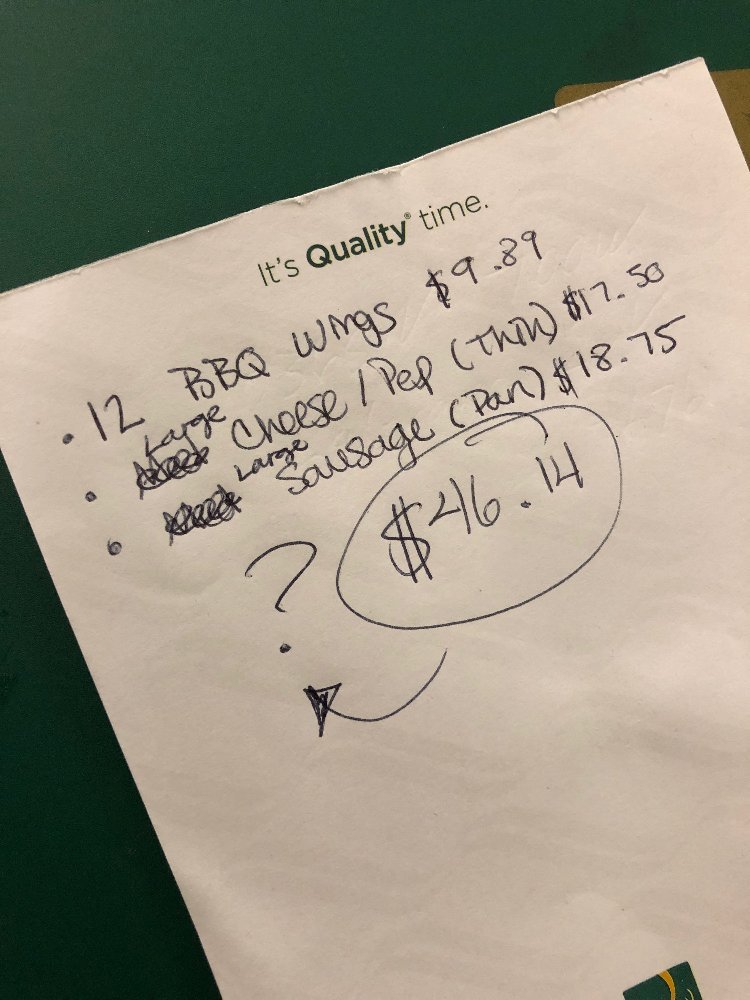 It's Quality® time.
• 12 BBQ Wings $9.89
• Large Cheese / Pep (Thin) $17.50
• Large Sausage (Pan) $18.75
$46.14
?